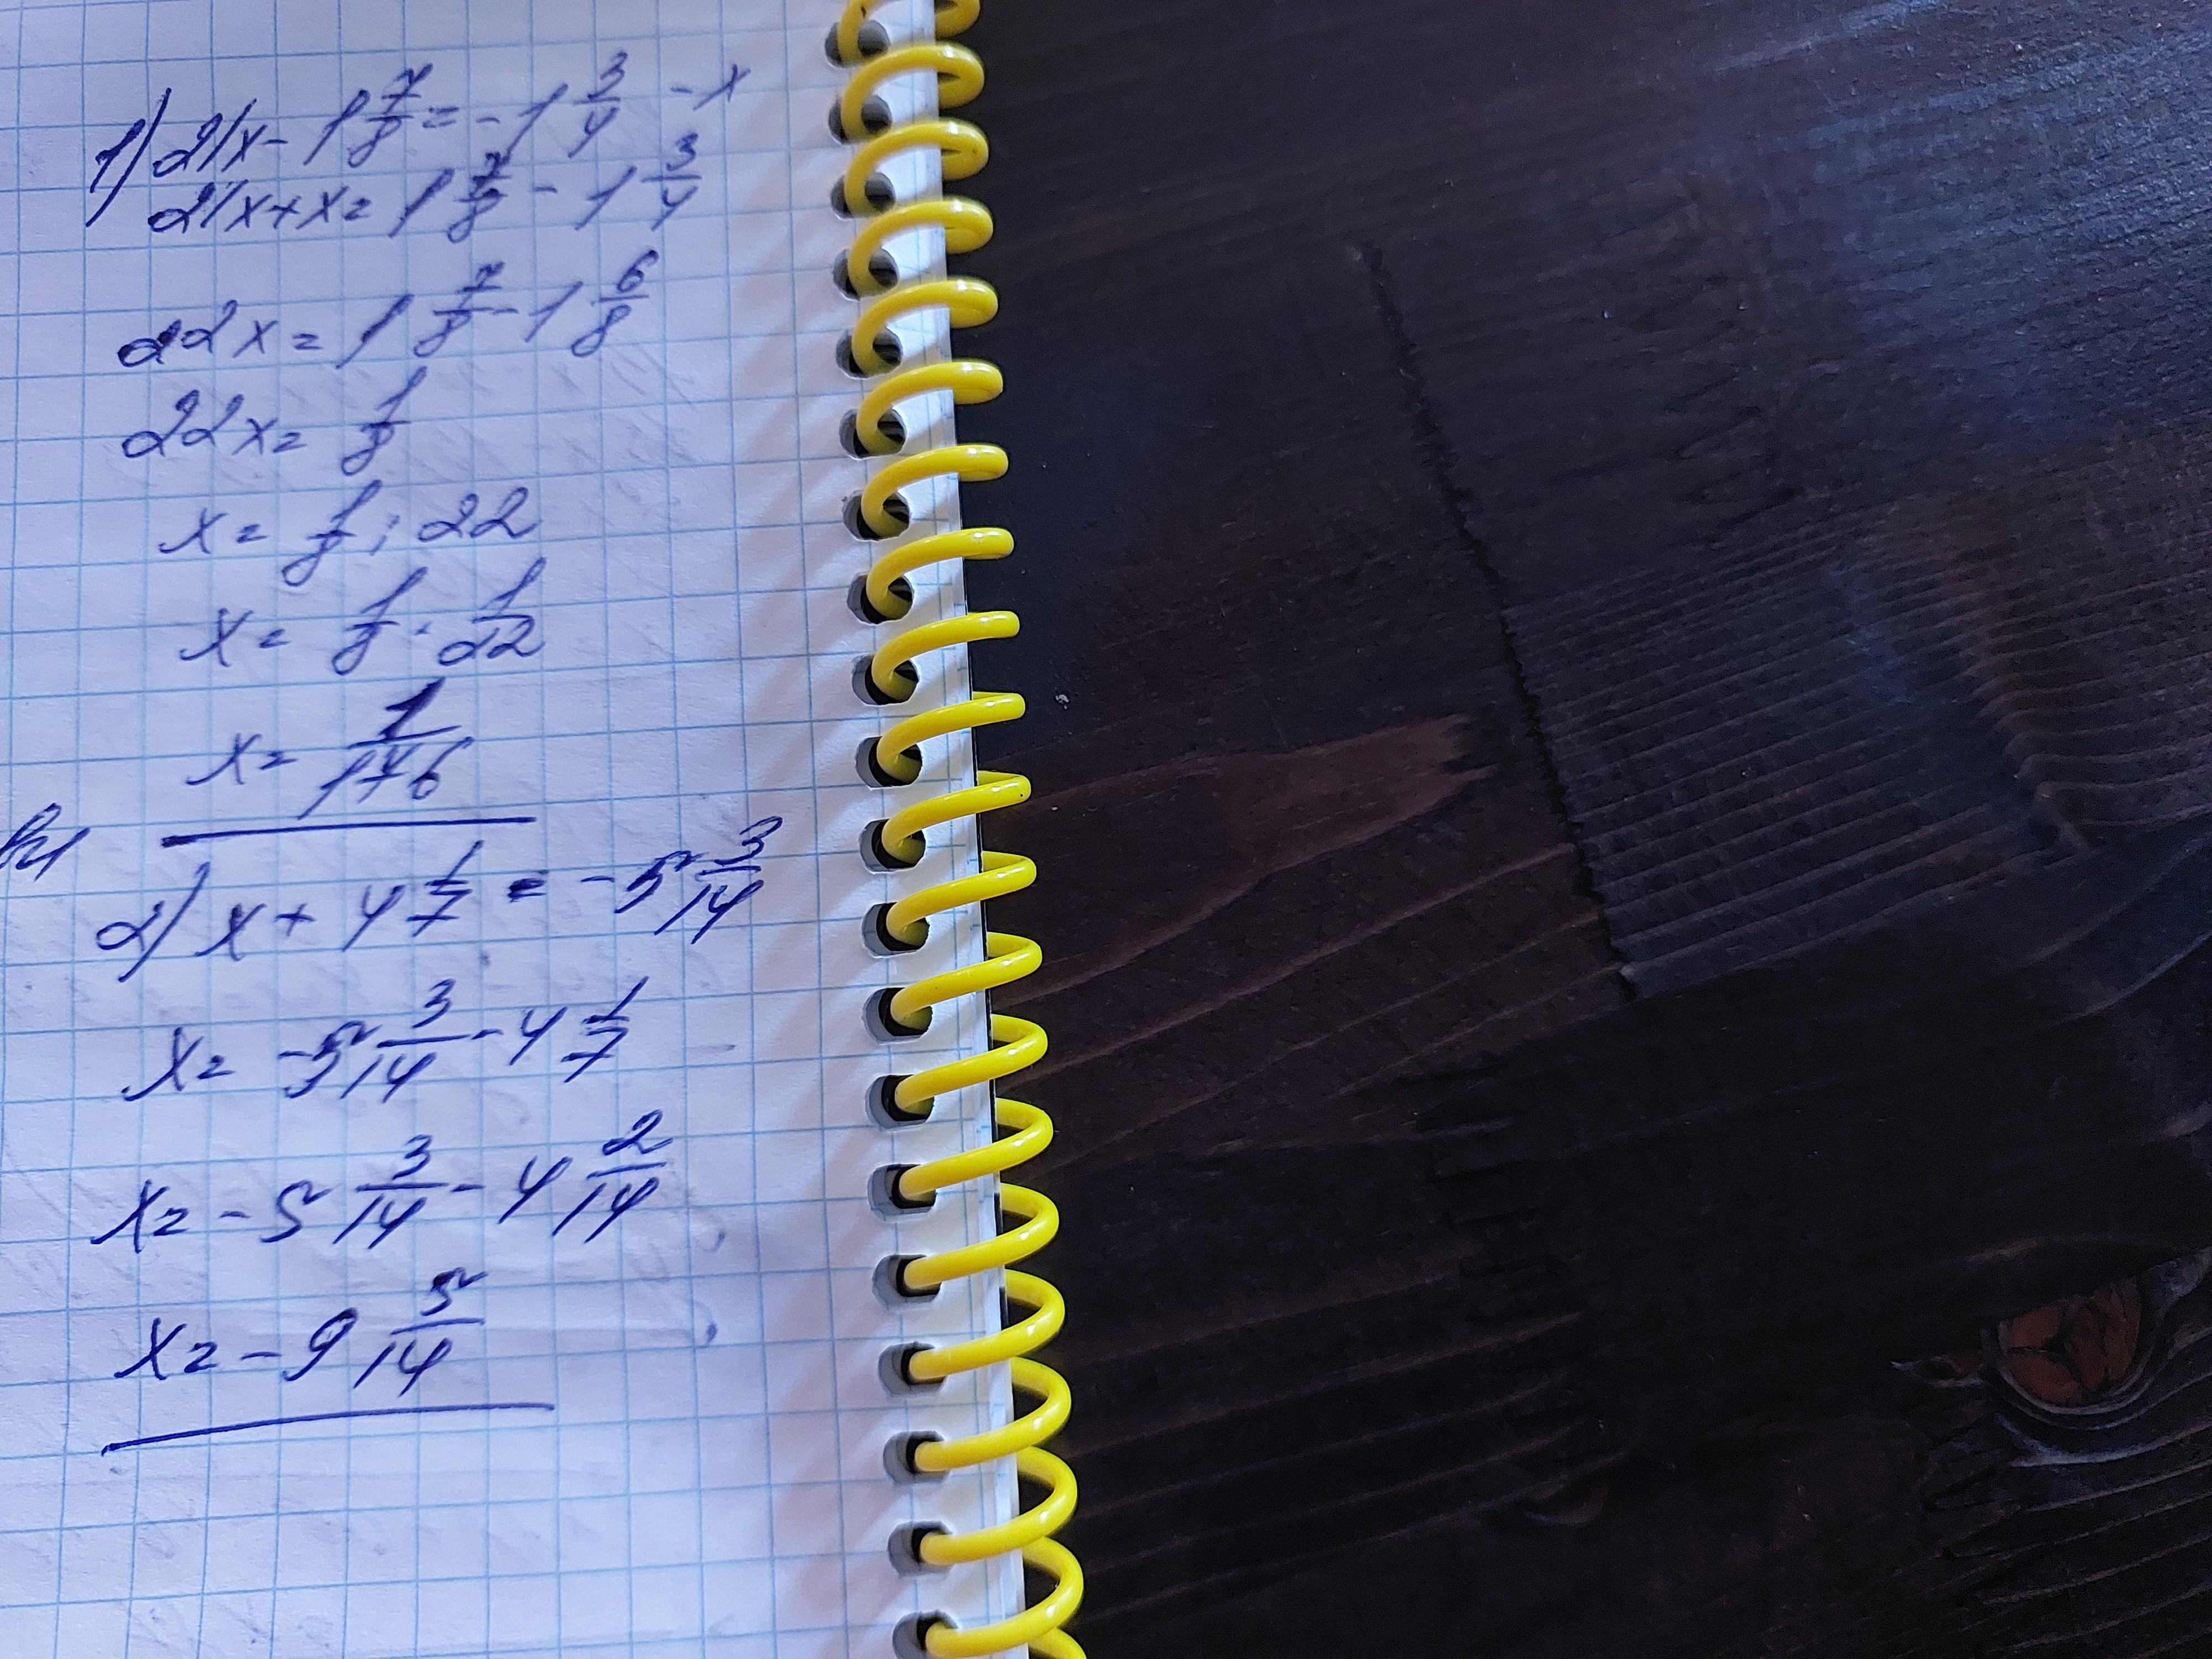 1) 21x - 1 7/8 = -1 3/4 - x
21x + x = 1 7/8 - 1 3/4
22x = 1 7/8 - 1 6/8
22x = 1/8
x = 1/8 : 22
x = 1/8 · 1/22
x = 1/176
2) x + 4 1/7 = -5 3/14
x = -5 3/14 - 4 1/7
x = -5 3/14 - 4 2/14
x = -9 5/14